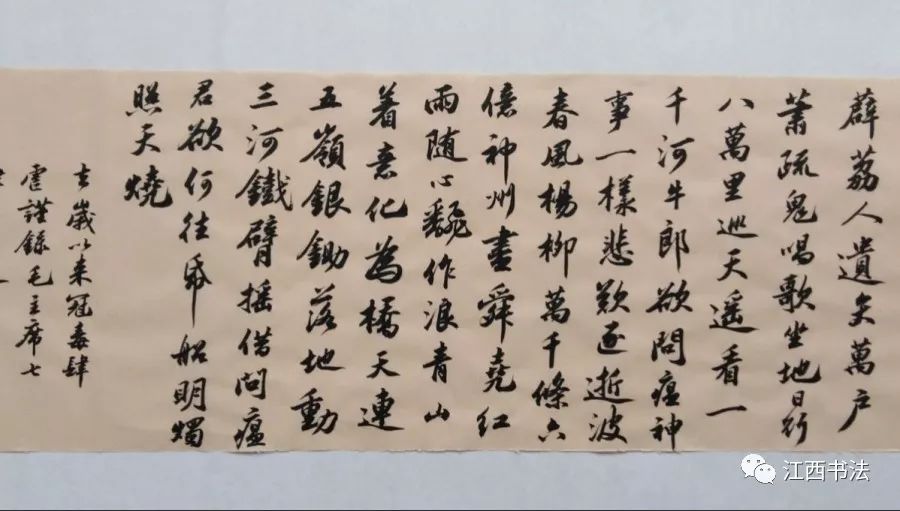 薜荔人遺矢萬户
萧疏鬼唱歌坐地日行
八萬里巡天遥看一
千河牛郎欲問瘟神
事一樣悲歎逐逝波
春風楊柳萬千條六
億神州盡舜堯紅
雨随心翻作浪青山
着意化為橋天連
五嶺銀鋤落地動
三河鐵臂摇借問瘟
君欲何往帋船明燭
照天燒
去歲以来冠毒肆
虐謹錄毛主席七
江西书法